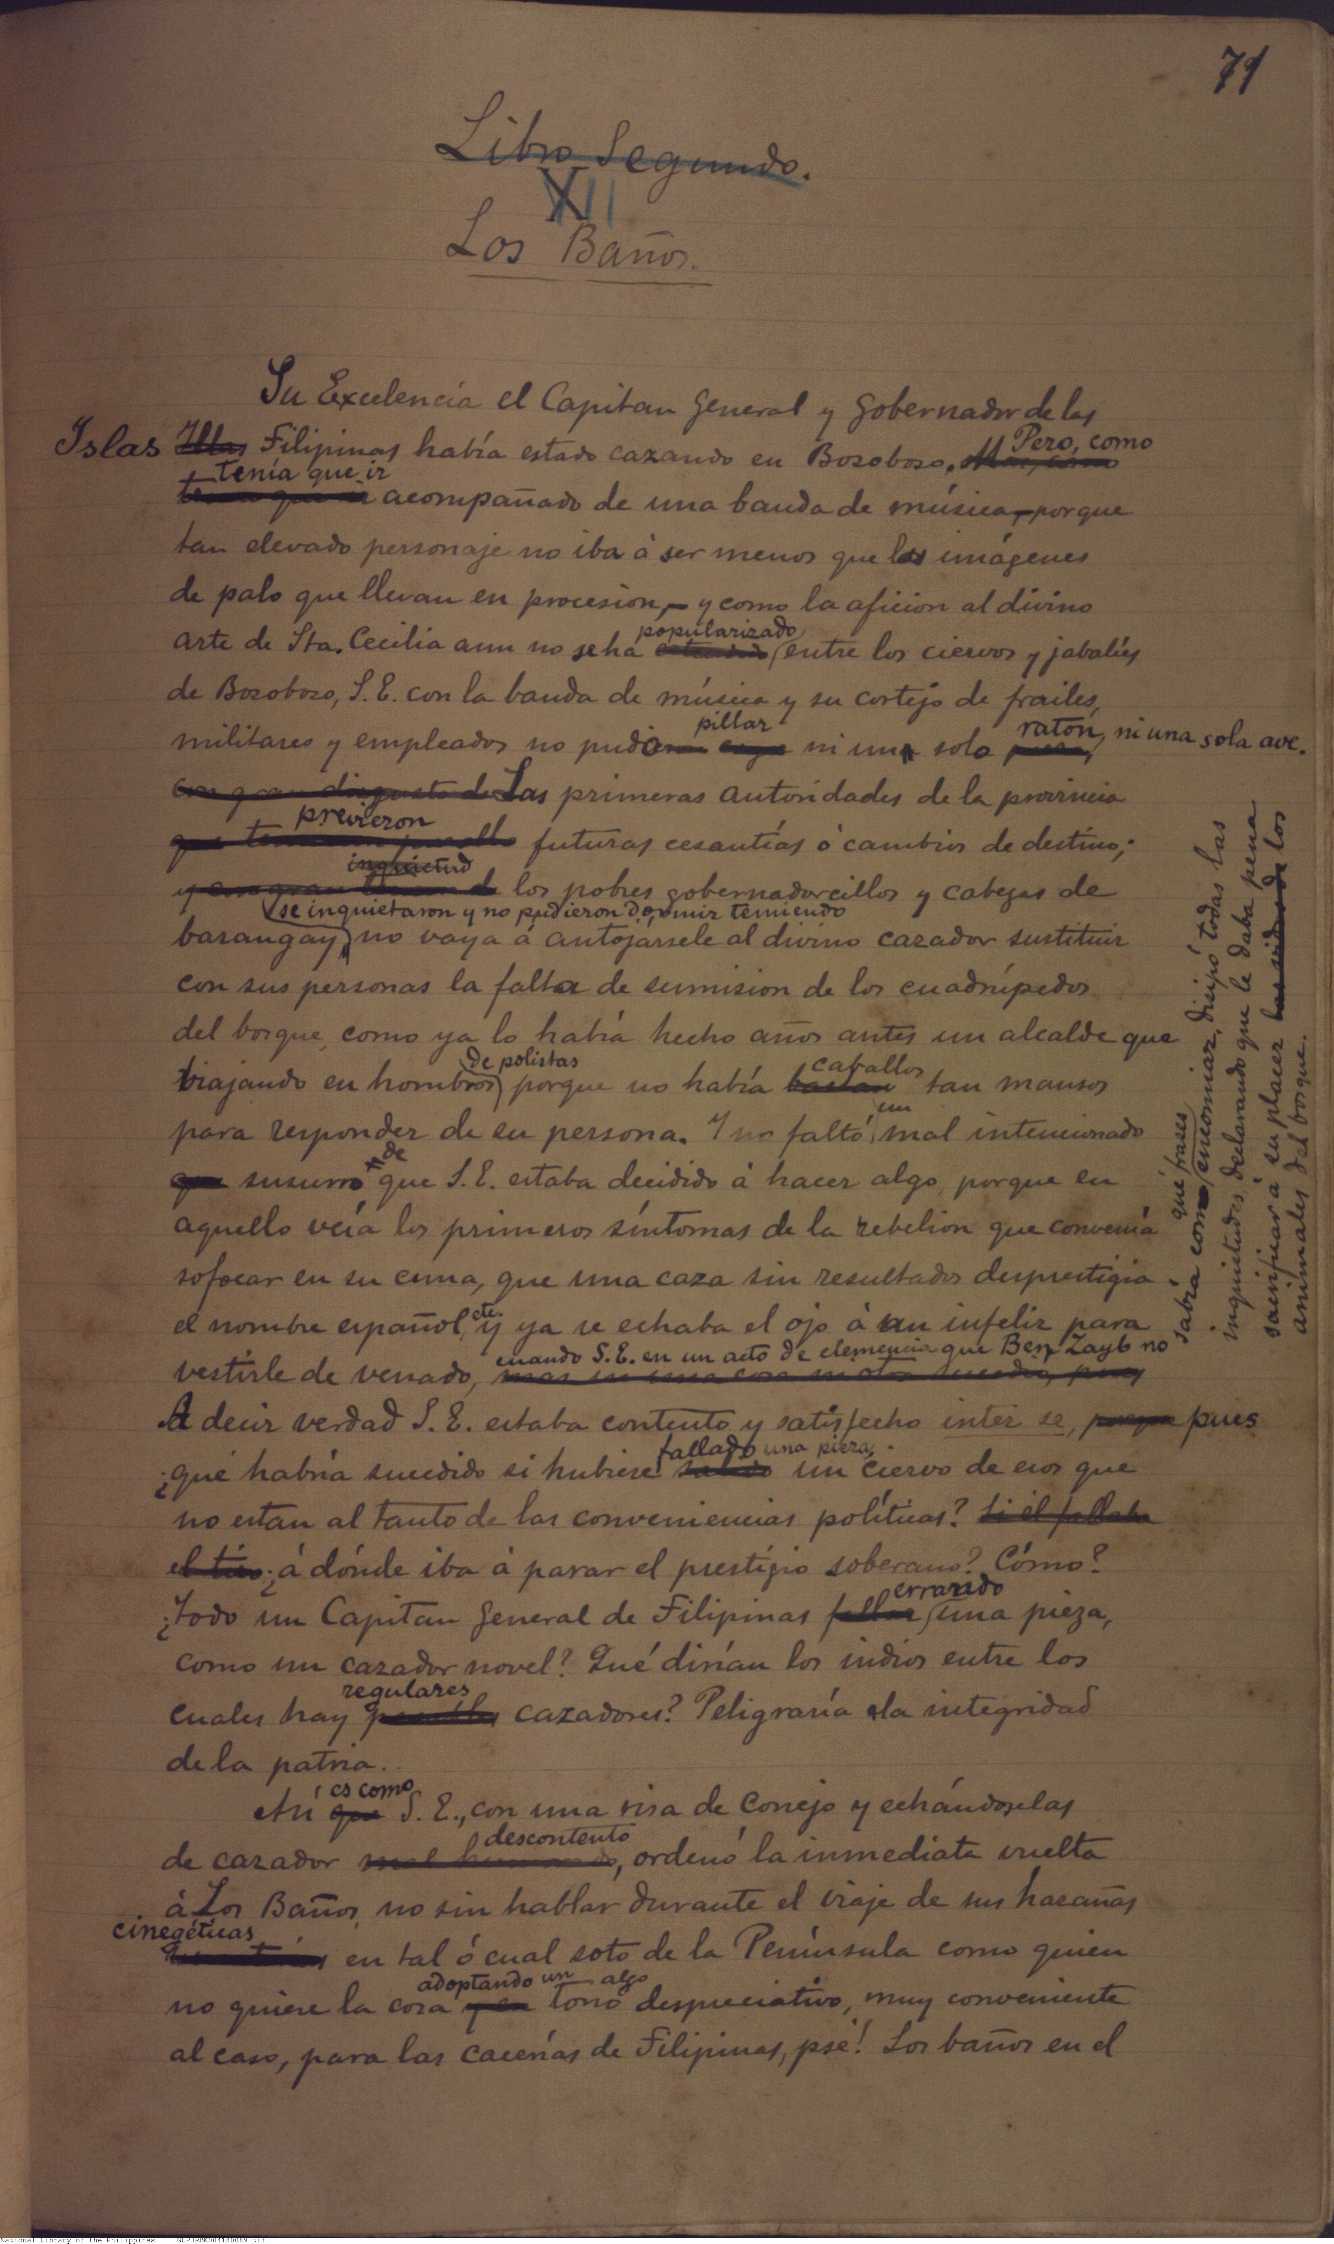 71
Libro Segundo.
XII
Los Baños.
Su Excelencia el Capitan General y Gobernador de las
Islas Filipinas había estado cazando en Bosoboso. Pero, como
tenía que ir
acompañado de una banda de música, porque
tan elevado personaje no iba á ser menos que las imágenes
de palo que llevan en procesion, y como la aficion al divino
popularizado
arte de Sta. Cecilia aun no se ha entre los ciervos y jabalíes
de Bosoboso, S. E. con la banda de música y su cortejo de frailes,
pillar ratón, ni una sola ave.
militares y empleados no pudo ni un solo
Las primeras autoridades de la provincia
previeron
futuras cesantías ó cambios de destino;
inquietud
los pobres gobernadorcillos y cabezas de
se inquietaron y no pudieron dormir temiendo
barangay no vaya á antojársele al divino cazador sustituir
con sus personas la falta de sumision de los cuadrúpedos
del bosque, como ya lo había hecho años antes un alcalde que
de polistas caballos
viajando en hombros porque no había tan mansos
un
para responder de su persona. Y no faltó mal intencionado
de
que susurro que S. E. estaba decidido á hacer algo, porque en
aquello veía los primeros síntomas de la rebelion que convenía
sofocar en su cuna, que una caza sin resultados desprestigia
etc.
el nombre español, y ya se echaba el ojo á un infeliz para
cuando S. E. en un acto de clemencia que Ben Zayb no
vestirle de venado,
sabía con qué frases encomiar, disipó todas las
inquietudes, declarando que le daba pena
sacrificar á su placer los
animales del bosque.
A decir verdad S. E. estaba contento y satisfecho inter se, pues
fallado una pieza,
¿qué habría sucedido si hubiese un ciervo de esos que
no estan al tanto de las conveniencias políticas? Si él fallaba
el tiro ¿á dónde iba á parar el prestigio soberano? Cómo?
errando
¿Todo un Capitan General de Filipinas fallar una pieza,
como un cazador novel? Qué dirían los indios entre los
regulares
cuales hay cazadores? Peligraría la integridad
de la patria.
es como
Así que S. E., con una risa de conejo y echándoselas
descontento
de cazador, ordenó la inmediata vuelta
á Los Baños, no sin hablar durante el viaje de sus hazañas
cinegéticas
en tal ó cual soto de la Península como quien
adoptando un algo
no quiere la cosa y en tono despreciativo, muy conveniente
al caso, para las cacerías de Filipinas, psé! Los baños en el